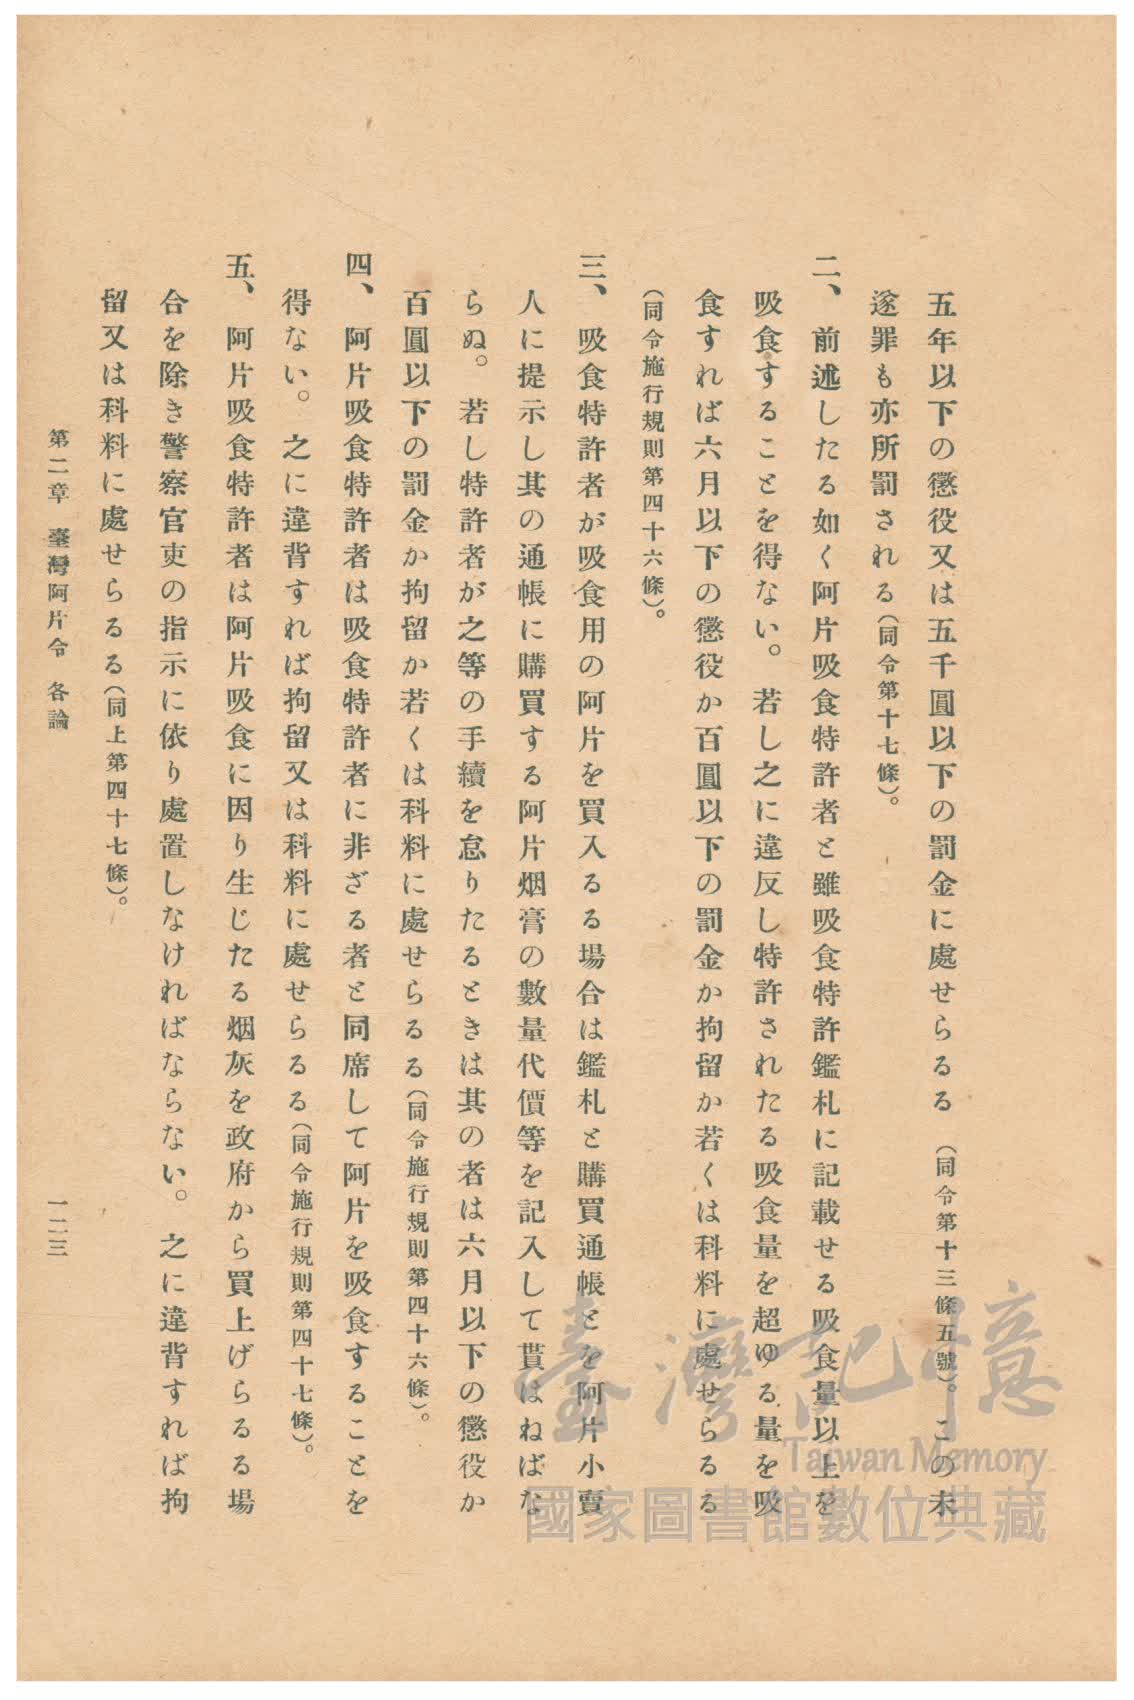 五年以下の懲役又は五千圓以下の罰金に處せらるる（同令第十三條五號）。この未
遂罪も亦所罰される（同令第十七條）。
二、前述したる如く阿片吸食特許者と雖吸食特許鑑札に記載せる吸食量以上を
吸食することを得ない。若し之に違反し特許されたる吸食量を超ゆる量を吸
食すれば六月以下の懲役か百圓以下の罰金か拘留か若くは科料に處せらるる
（同令施行規則第四十六條）。
三、吸食特許者が吸食用の阿片を買入るる場合は鑑札と購買通帳とを阿片小賣
人に提示し其の通帳に購買する阿片烟膏の數量代價等を記入して貰はねばな
らぬ。若し特許者が之等の手續を怠りたるときは其の者は六月以下の懲役か
百圓以下の罰金か拘留か若くは科料に處せらるる（同令施行規則第四十六條）。
四、阿片吸食特許者は吸食特許者に非ざる者と同席して阿片を吸食することを
得ない。之に違背すれば拘留又は科料に處せらるる（同令施行規則第四十七條）。
五、阿片吸食特許者は阿片吸食に因り生じたる烟灰を政府から買上げらるる場
合を除き警察官吏の指示に依り處置しなければならない。之に違背すれば拘
留又は科料に處せらるる（同上第四十七條）。
第二章 臺灣阿片令 各論
一二三
臺灣記憶
Taiwan Memory
國家圖書館數位典藏